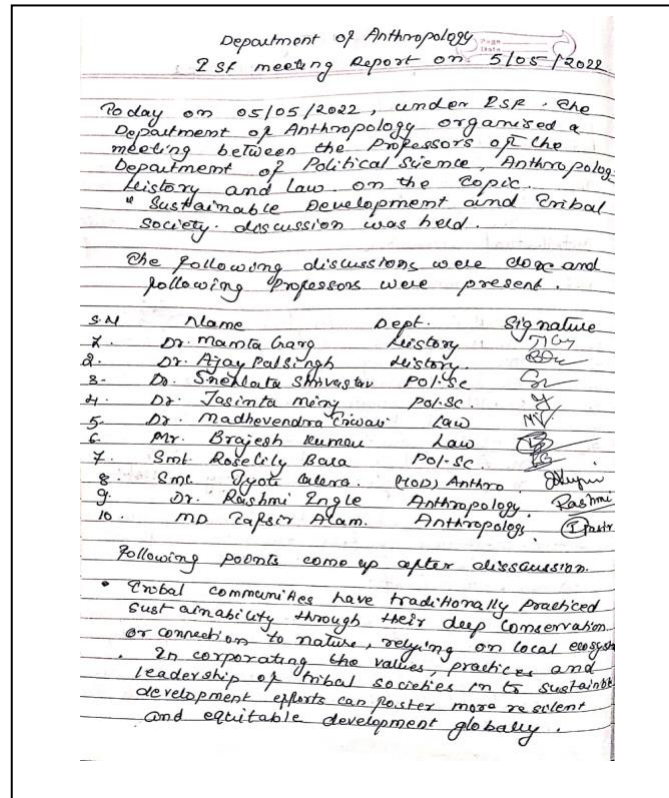 Page
Date
Department of Anthropology
ISR meeting Report on 5/05/2022
Today on 05/05/2022, under ISR. The
Department of Anthropology organised a
meeting between the Professors of the
Department of Political Science, Anthropolog
History and law on the Topic
" Sustainable Development and Tribal
society. discussion was held.
The following discussions were done and
following Professors were present.
S.N Name Dept. Signature
1. Dr. Mamta Garg History
2. Dr. Ajay Palsingh History.
3. Dr. Snehlata Shrivastav Pol.Sc
4. Dr. Jasinta Minj Pol.Sc.
5. Dr. Madhevendra Tiwari Law
6. Mr. Brajesh Kumar Law
7. Smt. Roselily Bara Pol-Sc
8. Smt. Jyoti (HOD) Anthro.
9. Dr. Rashmi Ingle Anthropology. Rashmi
10. MD Tafsir Alam. Anthropology.
Following points come up after disscussion.
• Tribal communities have traditionally practiced
sustainability through their deep conservation
or connection to nature, relying on local ecosyste
. In corporating the values, practices and
leadership of tribal societies in to sustainable
development efforts can foster more resilent
and equitable development globally.